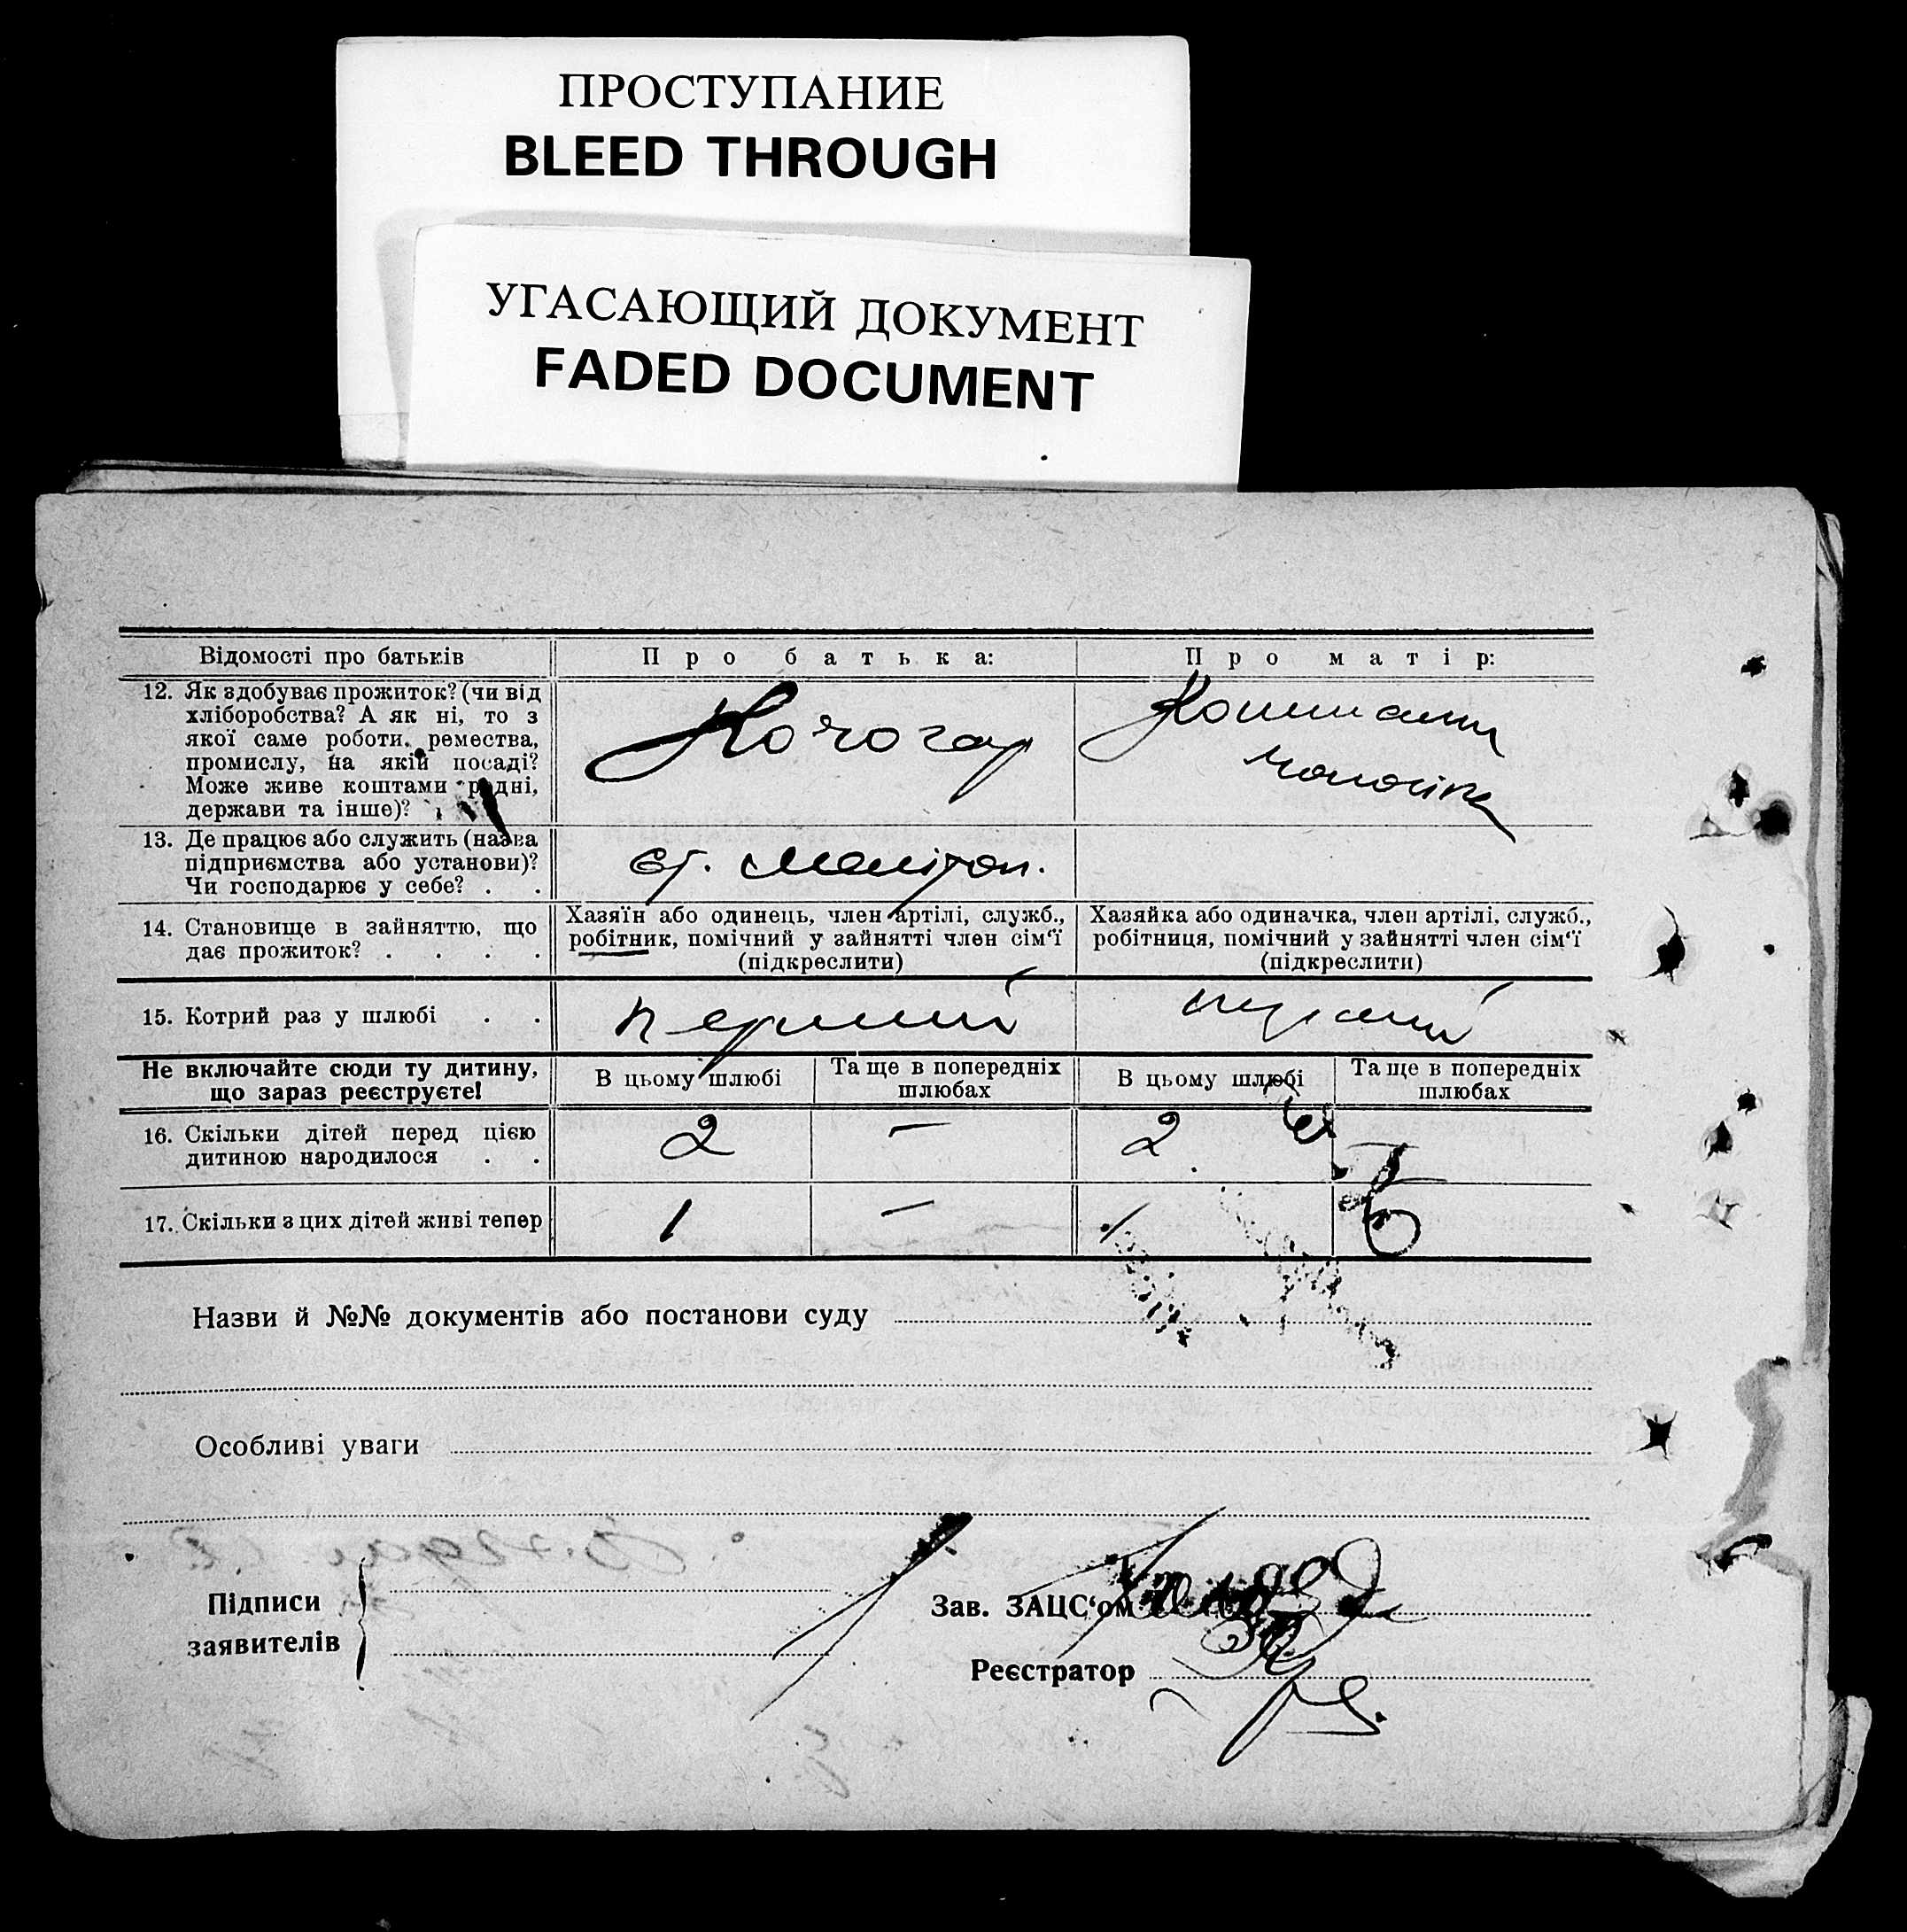 ПРОСТУПАНИЕ
BLEED THROUGH
УГАСАЮЩИЙ ДОКУМЕНТ
FADED DOCUMENT
Відомості про батьків
Про батька:
Про матір:
12. Як здобуває прожиток? (чи від
хліборобства? А як ні, то з
якої саме роботи, ремества,
промислу, на якій посаді?
Може живе коштами рідні,
держави та інше)?
Кочогар
Коштами
чоловіка
13. Де працює або служить (назва
підприємства або установи)?
Чи господарює у себе? . .
ст. Мелітоп.
14. Становище в зайняттю, що
дає прожиток? . . . .
Хазяїн або одинець, член артілі, служб.,
робітник, помічний у зайнятті член сім'ї
(підкреслити)
Хазяйка або одиначка, член артілі, служб.,
робітниця, помічний у зайнятті член сім'ї
(підкреслити)
15. Котрий раз у шлюбі . .
перший
перший
Не включайте сюди ту дитину,
що зараз реєструєте!
В цьому шлюбі
Та ще в попередніх
шлюбах
В цьому шлюбі
Та ще в попередніх
шлюбах
16. Скільки дітей перед цією
дитиною народилося . .
2
—
2
17. Скільки з цих дітей живі тепер
1
—
1
Назви й №№ документів або постанови суду
Особливі уваги
Підписи
заявителів
Зав. ЗАЦС'ом
Реєстратор